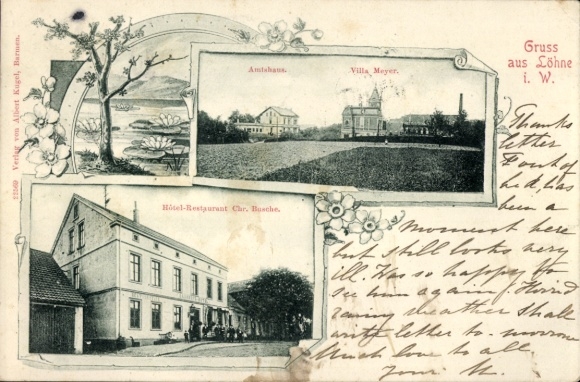 Gruss
aus Löhne
i. W.
Amtshaus.
Villa Meyer.
Hôtel-Restaurant Chr. Busche.
Verlag von Albert Kugel, Barmen.
Thanks
letter
has
been a
moment here
but still looks very
ill. Was so happy to
see him again. Horrid
rainy weather shall
write letter to-morrow
Much love to all
your